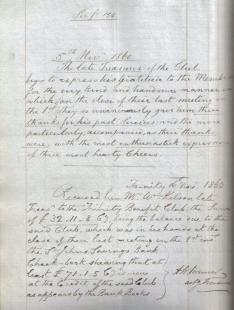 5th Nov. 1860
The late Treasurer of the Club
begs to express his gratitude to the Members
for the very kind and handsome manner in
which, on the close of their last meeting on
the 1st, they so unanimously gave him their
thanks for his past services, and the more
particularly, accompanied, as their thanks
were, with the most enthusiastick expression
of their most hearty Cheers.
Trinity 6 Nov. 1860
Received from Mr. W. Kelson late
Treasr. to the Trinity Benefit Club the Sum
of £32.11.3 Cy, being the balance due to the
said Club, which was in his hands at the
close of their last meeting on the 1st inst.
the St. Johns Savings Bank
Check-book shewing that at
least £71.1.5 Cy
at the Credit of the said Club
as appears by the Bank Books